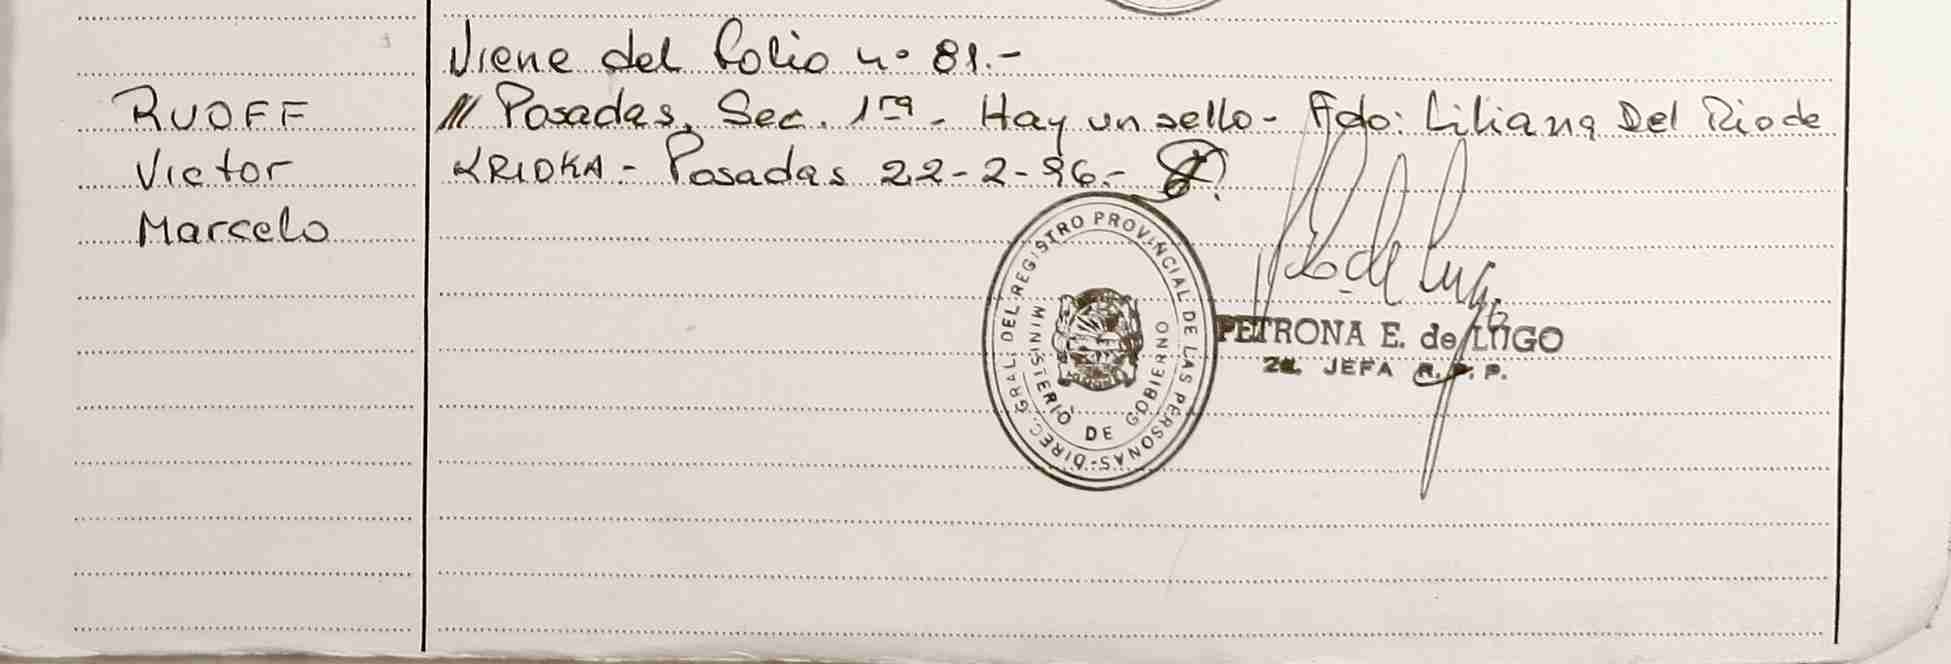 Viene del Folio nº 81.-
RUOFF
Victor
Marcelo
/// Posadas, Sec. 1ra - Hay un sello - Fdo: Liliana Del Rio de
KRIDKA - Posadas 22-2-96.-
DIREC. GRAL. DEL REGISTRO PROVINCIAL DE LAS PERSONAS-
MINISTERIO DE GOBIERNO
PETRONA E. de LUGO
2a. JEFA R. P. P.